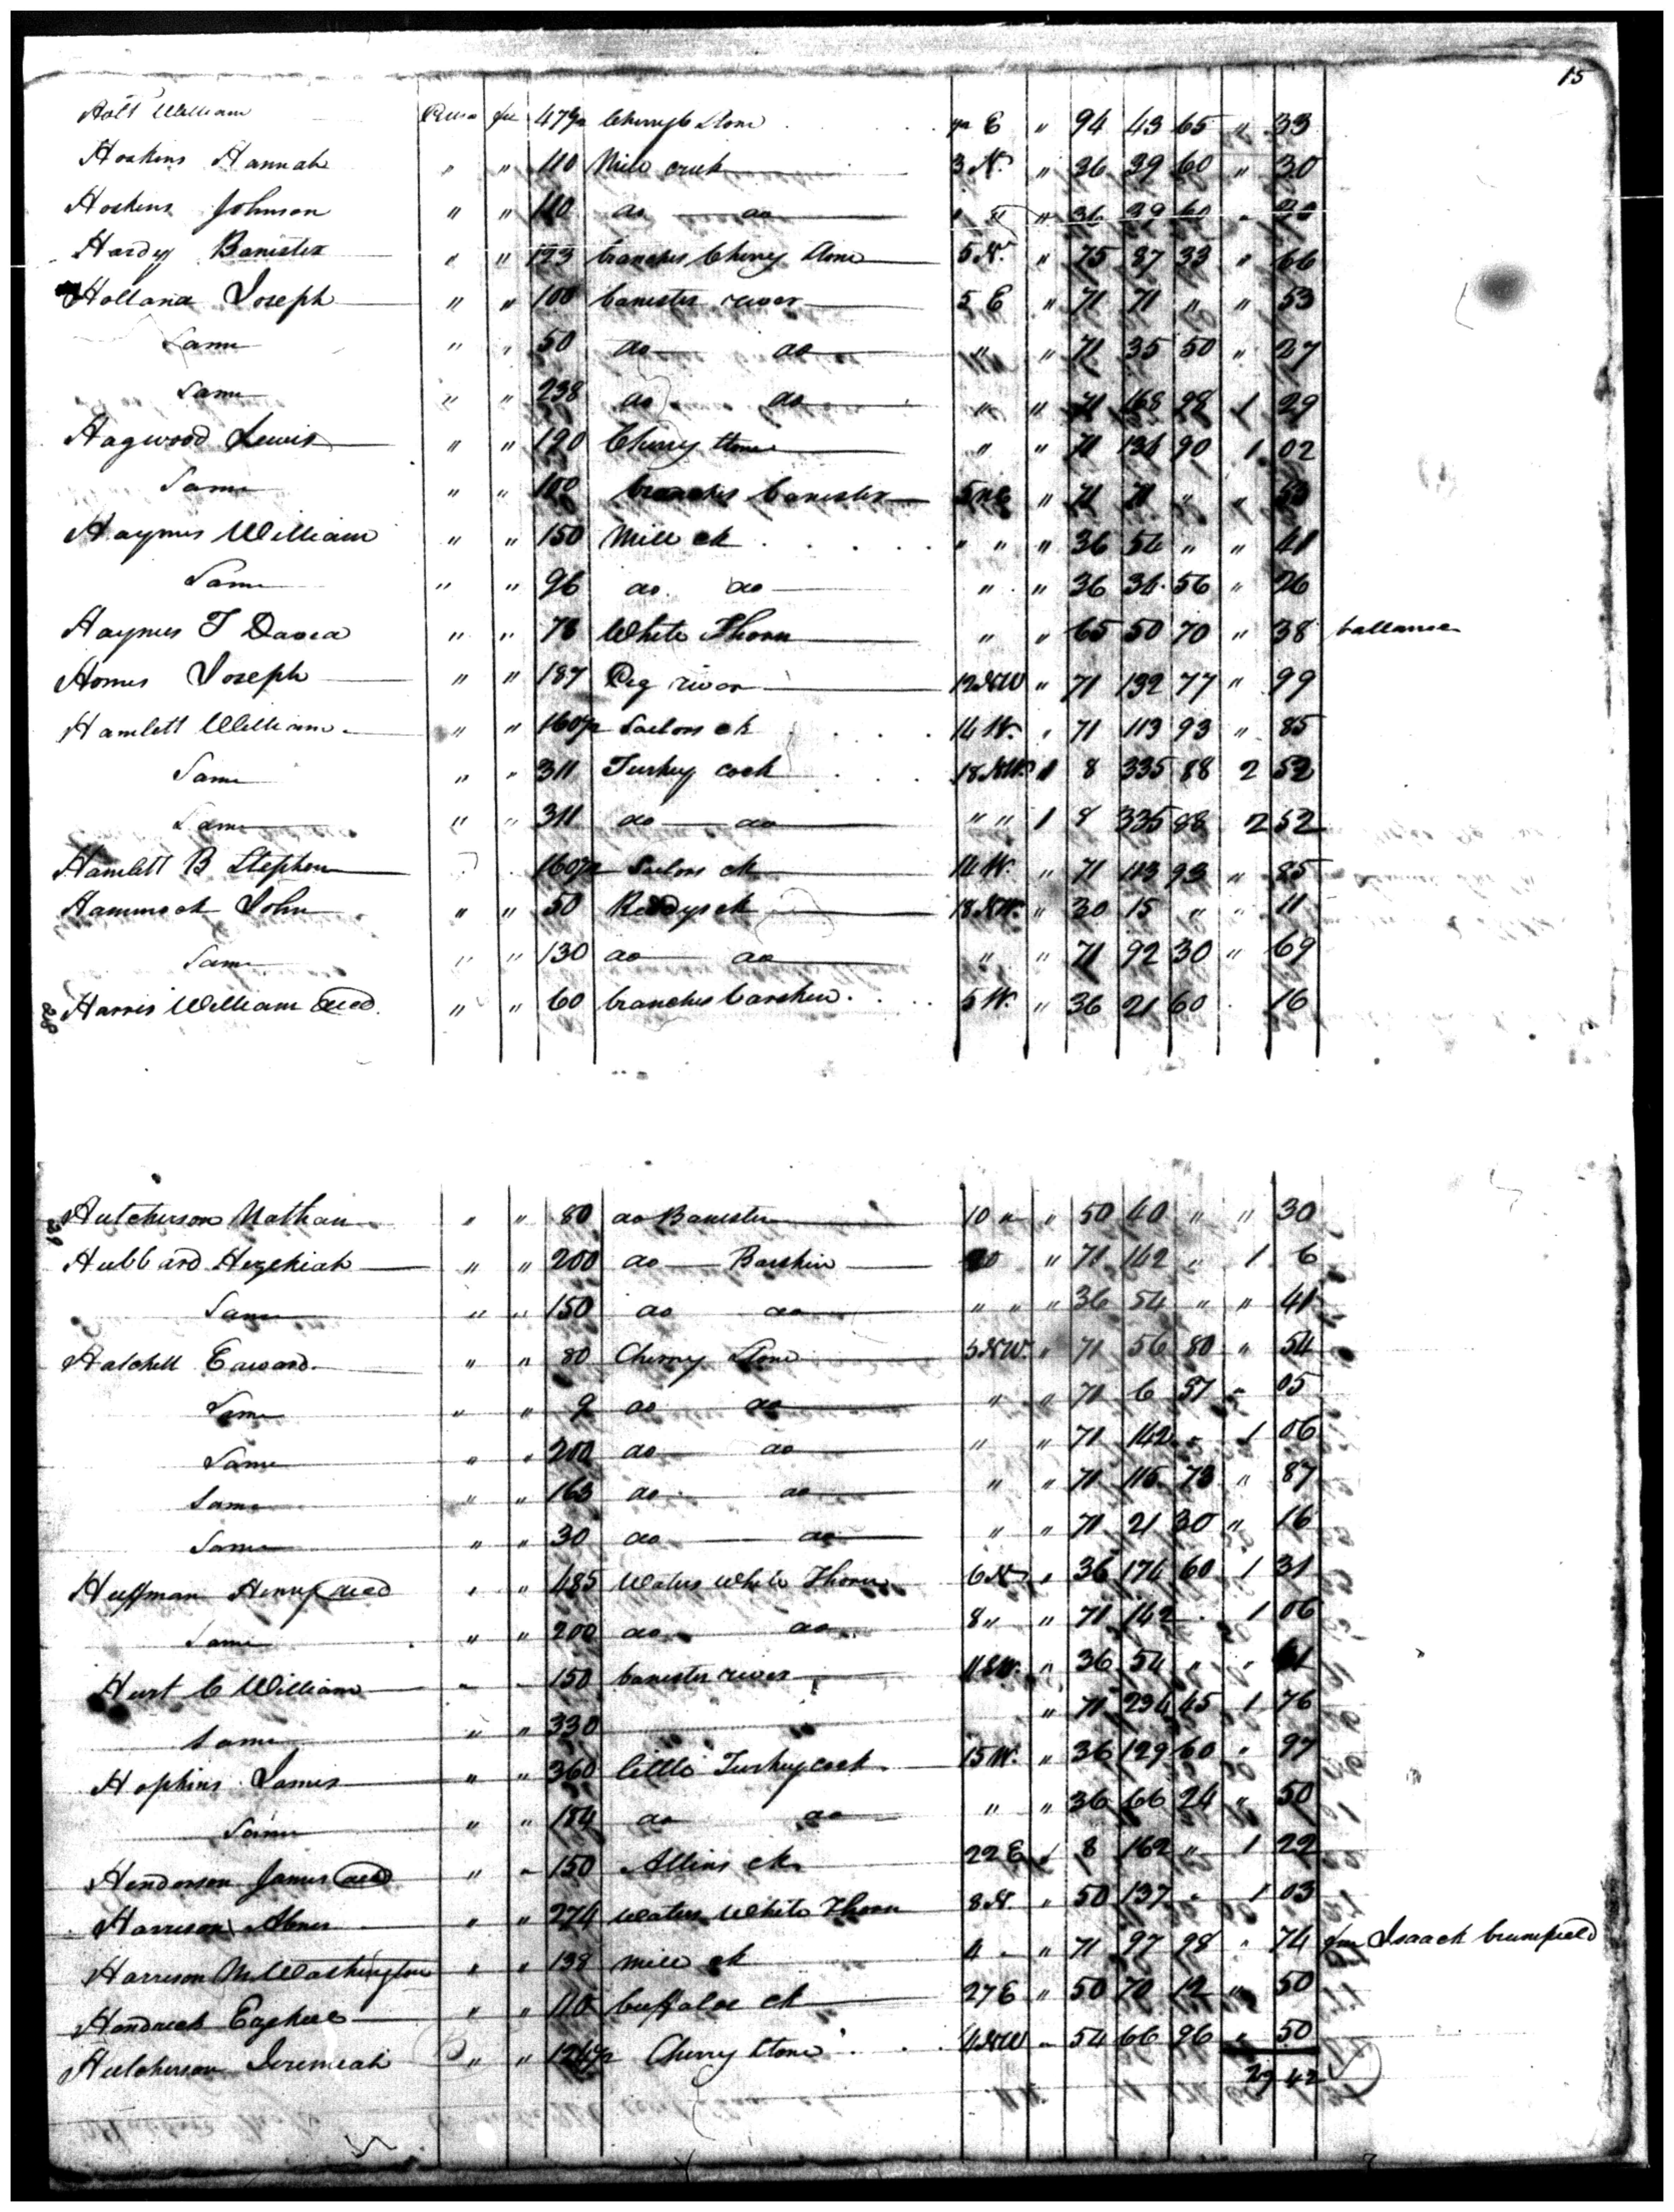 15
Holt William " 47½ Cherry Stone ½ E " 94 43 65 " 33
Hoskins Hannah " " 110 Mill creek 3 N. " 36 39 60 " 30
Hoskins Johnson " " 110 do do " " " 36 39 60 " 30
Hardy Banister " " 123 branches Cherry Stone 5 N. " 75 87 33 " 66
Holland Joseph " " 100 banister river 5 E " 71 71 " " 53
Same " " 50 do do " " 71 35 50 " 27
Same " " 238 do do " " 71 168 98 1 29
Hagwood Lewis " " 190 Cherry Stone " " 71 134 90 1 02
Same " " 100 branches banister 5 NE " 71 71 " " 53
Haymes William " " 150 Mill ck " " " 36 54 " " 41
Same " " 96 do do " " 36 34 56 " 26
Haymes T David " " 78 White Thorn " " 65 50 70 " 38 ballance
Homes Joseph " " 187 Pig river 12 NW " 71 132 77 " 99
Hamlett William " " 160½ Sailors ck 14 W. " 71 113 93 " 85
Same " " 311 Turkey cock 18 NW. 1 8 335 88 2 52
Same " " 311 do do " " 1 8 335 88 2 52
Hamlett B Stephen 160½ Sailors ck 14 W. " 71 113 93 " 85
Hammock John " " 50 Reddys ck 18 NW. " 30 15 " " 11
Same " " 130 do do " " 71 92 30 " 69
28 Harris William decd. " " 60 branches barskin 5 W. " 36 21 60 16
Hutcherson Nathan " " 80 do Banister 10 " " 50 40 " " 30
Hubbard Hezekiah " " 200 do Barskin " 71 142 " 1 6
Same " " 150 do do " " " 36 54 " " 41
Hatchell Edward " " 80 Cherry Stone 5 NW. " 71 56 80 " 54
Same " " 9 do do " " 71 6 37 " 05
Same " " 200 do do " " 71 142 " 1 06
Same " " 163 do do " " 71 115 73 " 87
Same " " 30 do do " " 71 21 30 " 16
Huffman Henry decd " " 485 Waters White Thorn 6 N. " 36 174 60 1 31
Same " " 200 do do 8 " " 71 142 " 1 06
Hurt C William " " 150 banister river " 36 54 " " 41
Same " " 330 " 71 234 45 1 76
Hopkins James " " 360 little Turkeycock 15 W. " 36 129 60 " 97
Same " " 184 do do " " 36 66 24 " 50
Henderson James decd " " 150 Allins ck 22 E 1 8 162 " 1 22
Harrison Abner " " 274 Waters White Thorn 8 N. " 50 137 " 1 03
Harrison M Washington " " 138 Mill ck 4 " " 71 97 98 " 74 from Isaack brumfield
Hendrick Ezekiel " " buffaloe ck 27 E " 50 70 12 " 50
Hutcherson Jeremiah " " 124½ Cherry Stone 4 NW " 54 66 96 " 50
29 42